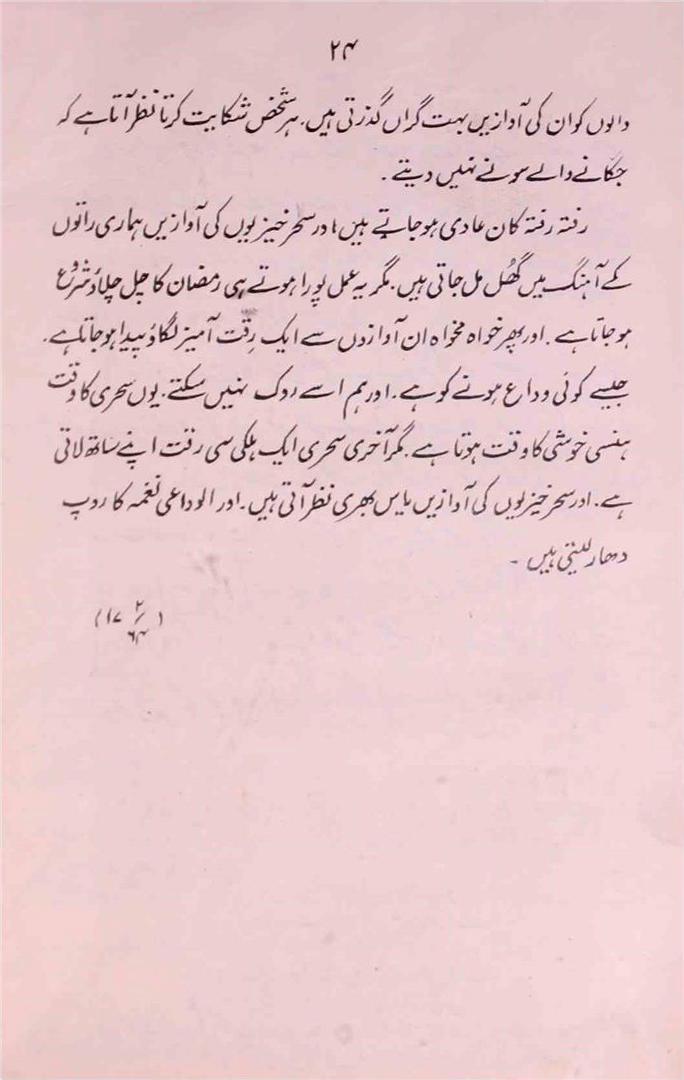 ۲۴
والوں کو ان کی آوازیں بہت گراں گذرتی ہیں. ہر شخص شکایت کرتا نظر آتا ہے کہ
جگانے والے سونے نہیں دیتے.
رفتہ رفتہ کان عادی ہو جاتے ہیں اور سحر خیزیوں کی آوازیں ہماری راتوں
کے آہنگ میں گھُل مل جاتی ہیں. مگر یہ عمل پورا ہوتے ہی رمضان کا چل چلاؤ شروع
ہو جاتا ہے. اور پھر خواہ مخواہ ان آوازوں سے ایک رِقت آمیز لگاؤ پیدا ہو جاتا ہے.
جیسے کوئی وداع ہونے کو ہے. اور ہم اسے روک نہیں سکتے. یوں سحری کا وقت
ہنسی خوشی کا وقت ہوتا ہے. مگر آخری سحری ایک ہلکی سی رقت اپنے ساتھ لاتی
ہے. اور سحر خیزیوں کی آوازیں یاس بھری نظر آتی ہیں. اور الوداعی نغمہ کا روپ
دھار لیتی ہیں ۔
(۱۷ ۲/۶۴)